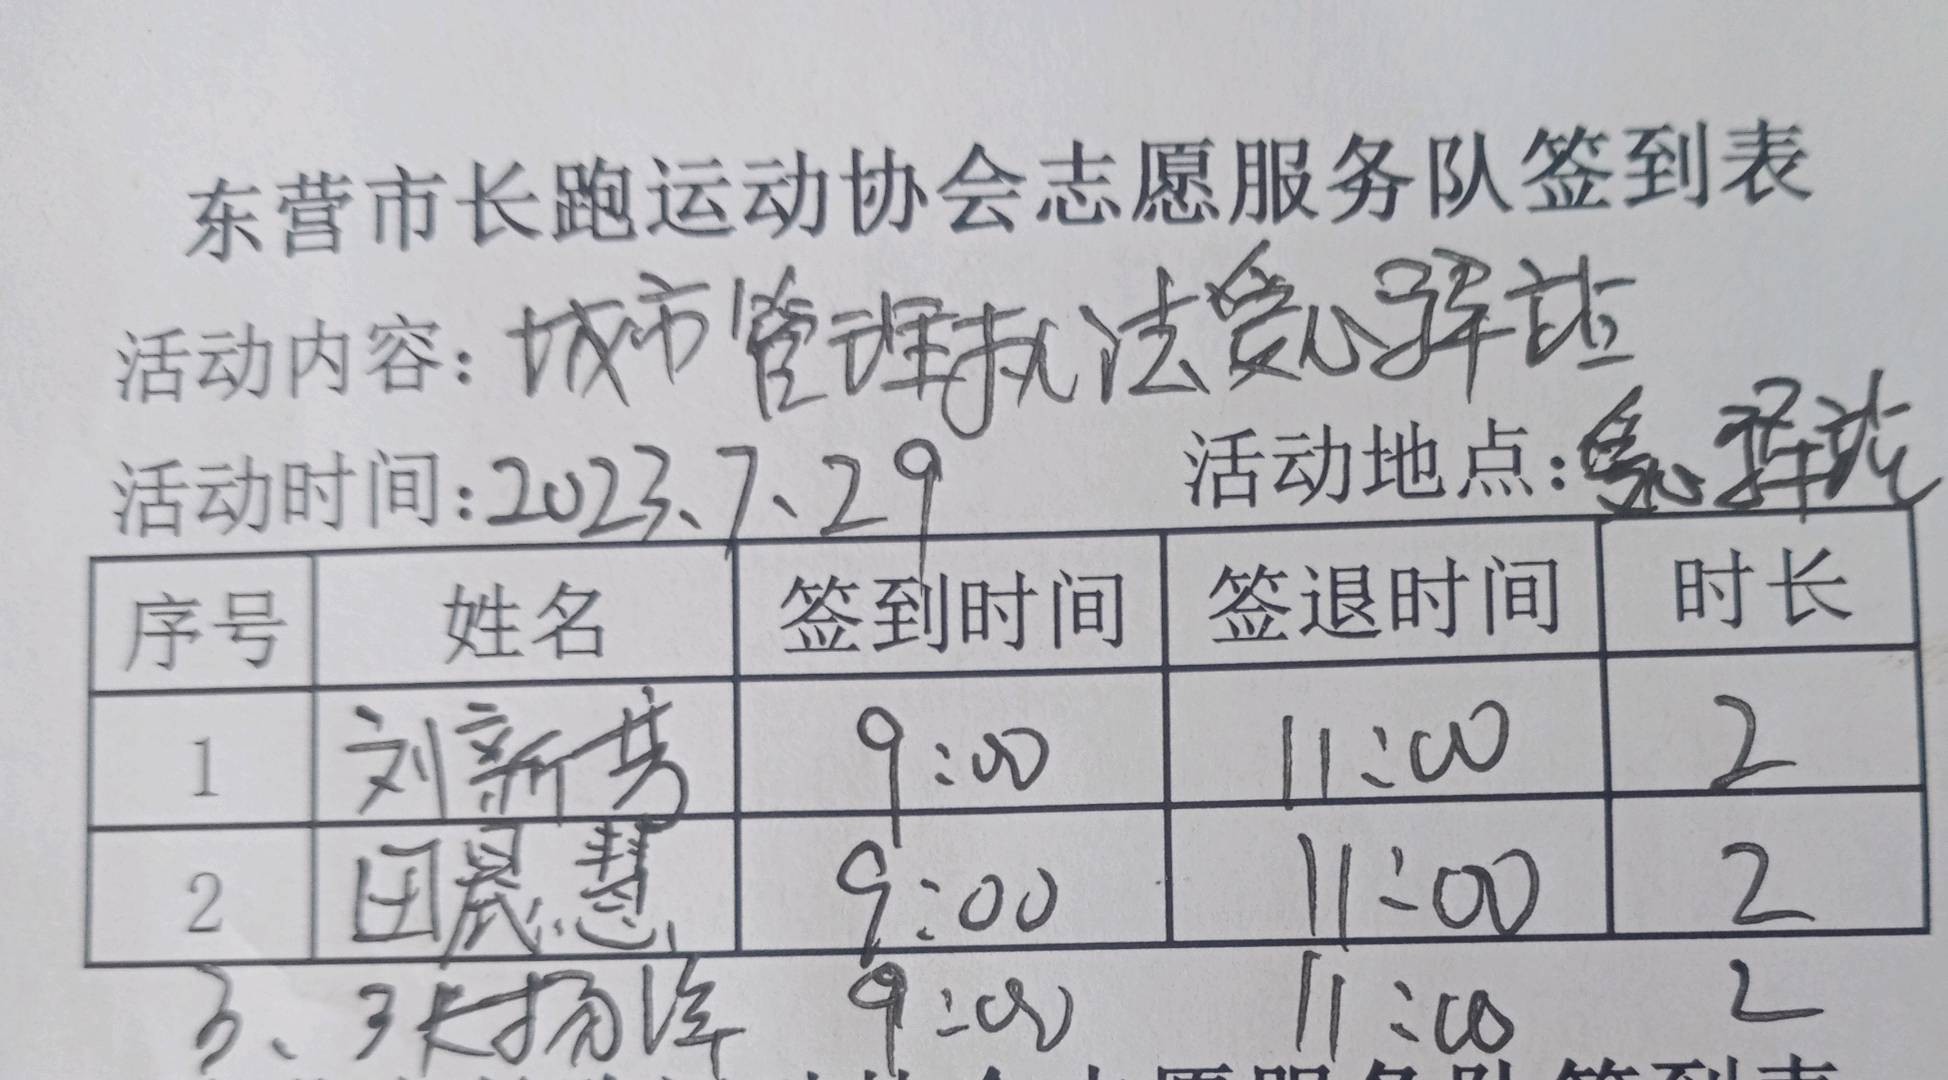 东营市长跑运动协会志愿服务队签到表
活动内容：城市管理执法爱心驿站
活动时间：2023、7、29 活动地点：爱心驿站
序号 姓名 签到时间 签退时间 时长
1 刘新芳 9:00 11:00 2
2 田晨慧 9:00 11:00 2
3、张扬洋 9:00 11:00 2